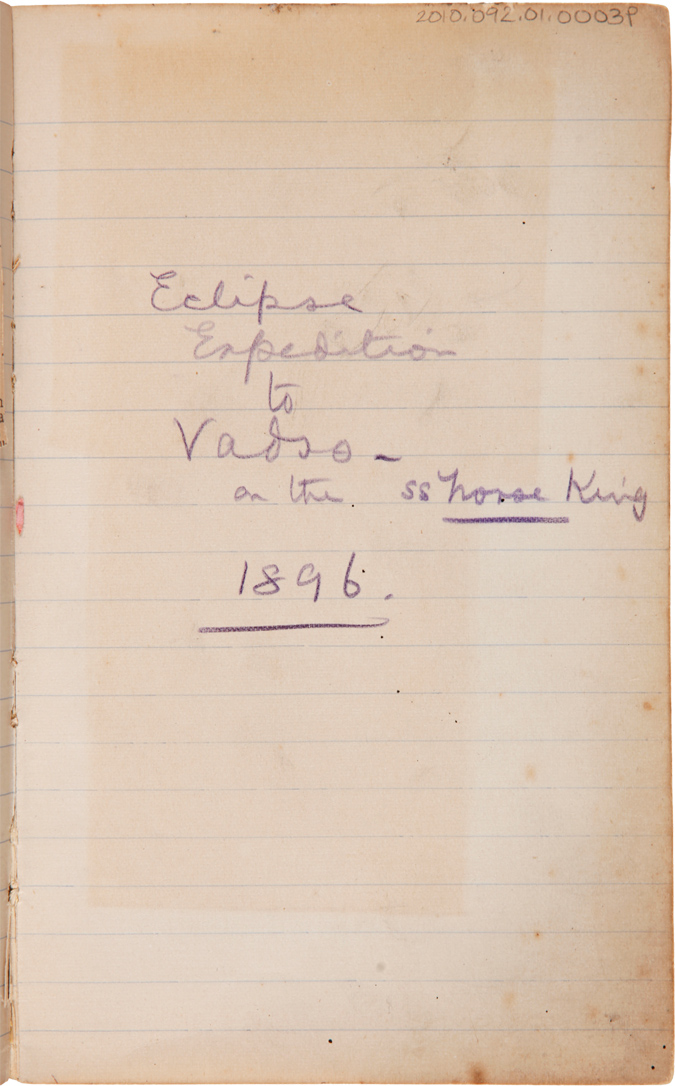 2010.092.01.0003P
Eclipse
Expedition
to
Vadso -
on the ss Norse King
1896.